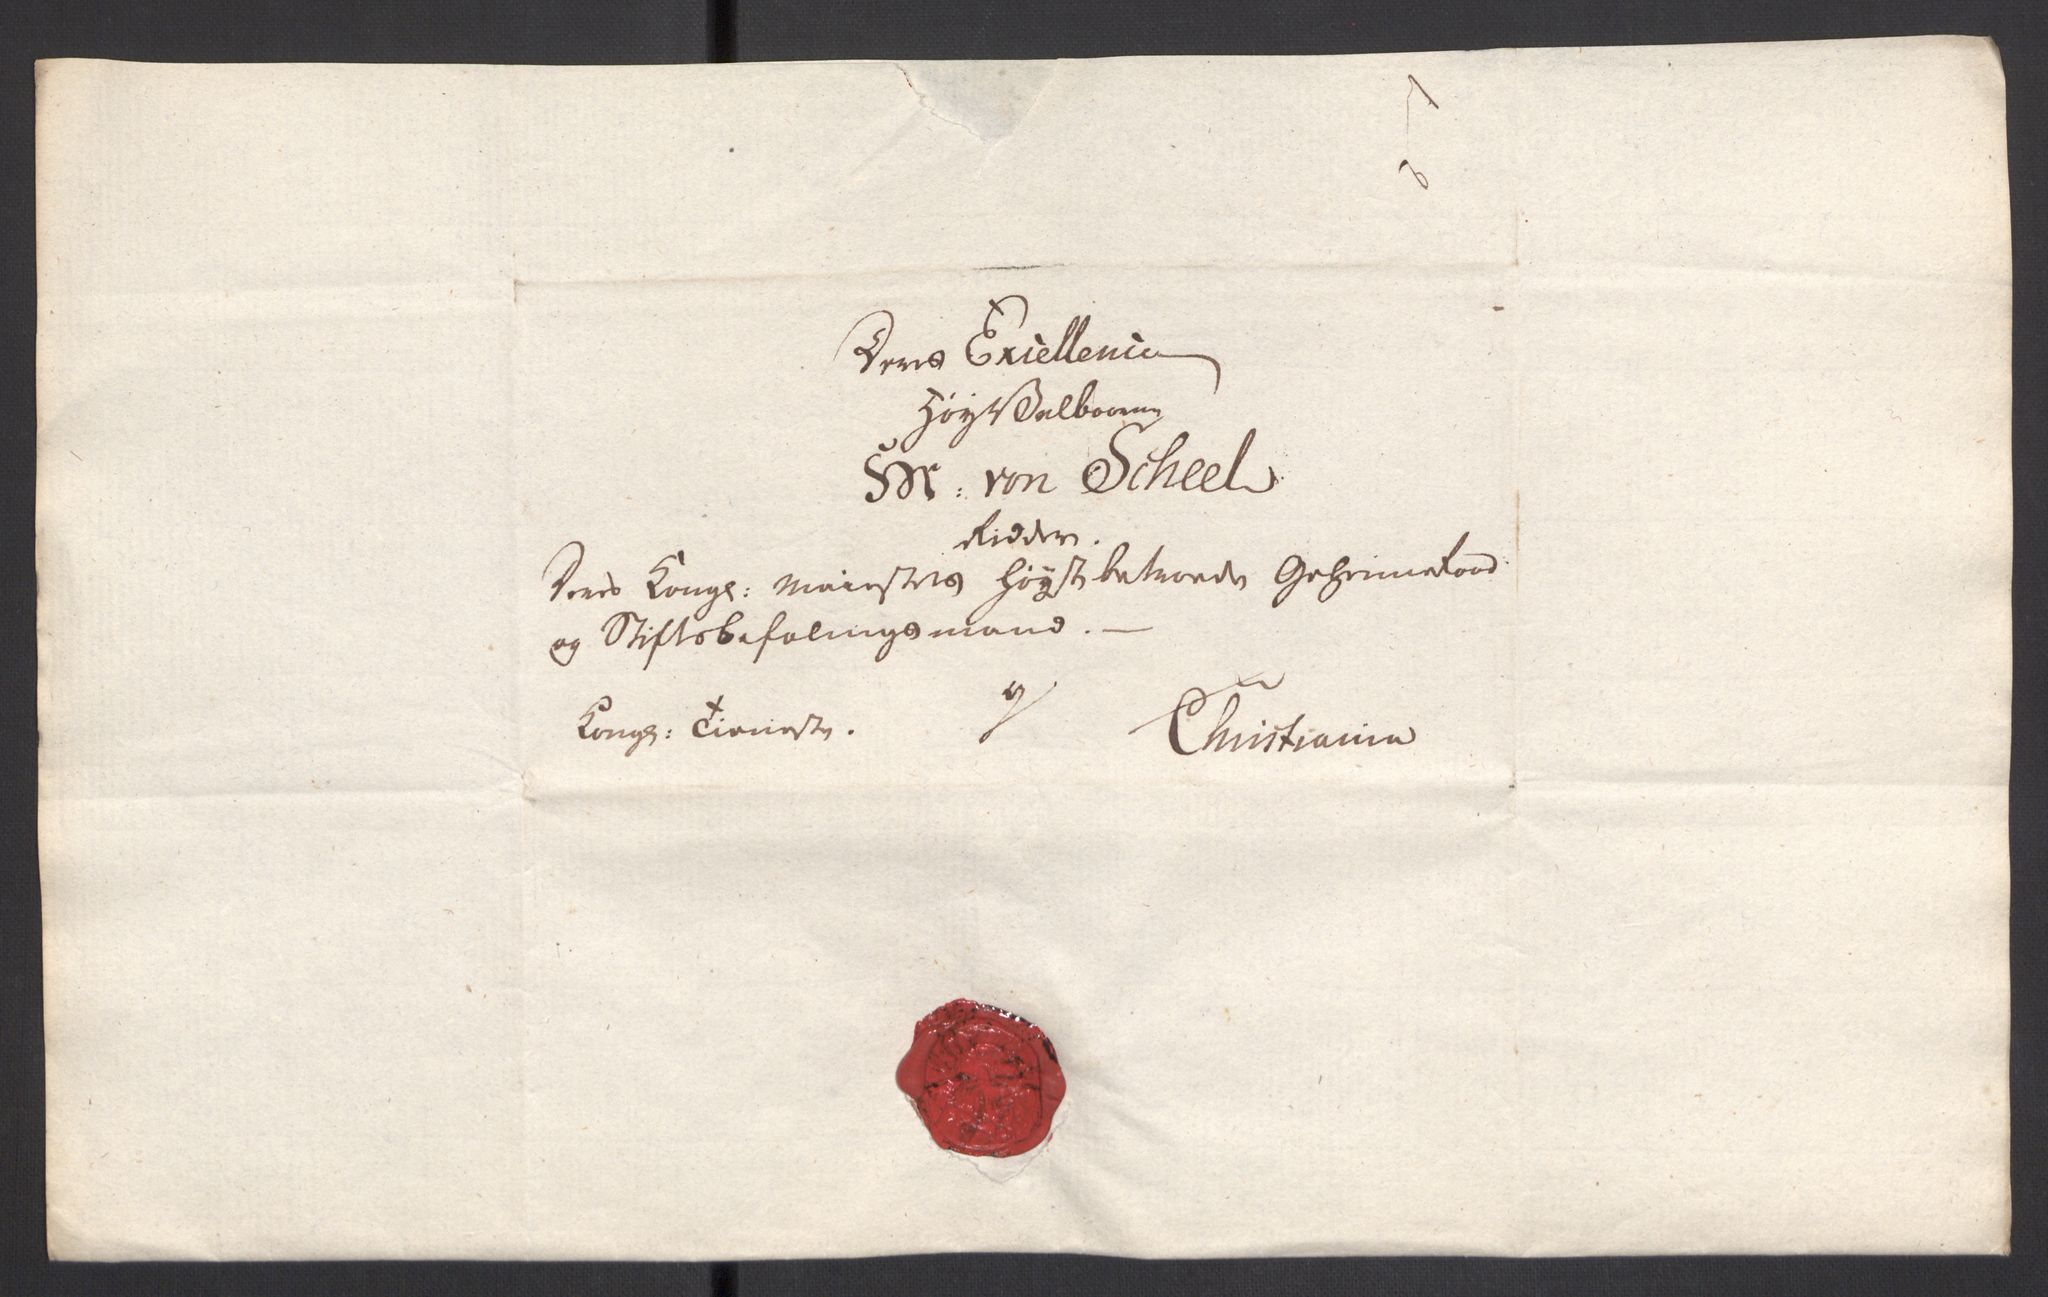 Deres Excellence
Høy Velbaarne
Hr: von Scheel
Ridder.
Deres Kongl: Maiestets Høyst betroede Geheimeraad
og Stiftsbefalingsmand. —
Kongl: Tieneste. Christiania